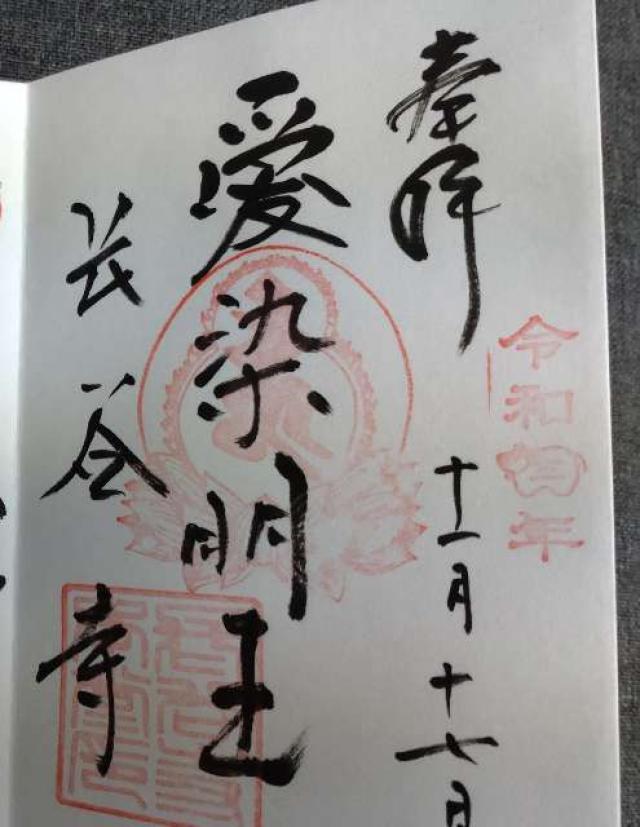 奉拝
令和四年
十一月十七日
愛染明王
長谷寺